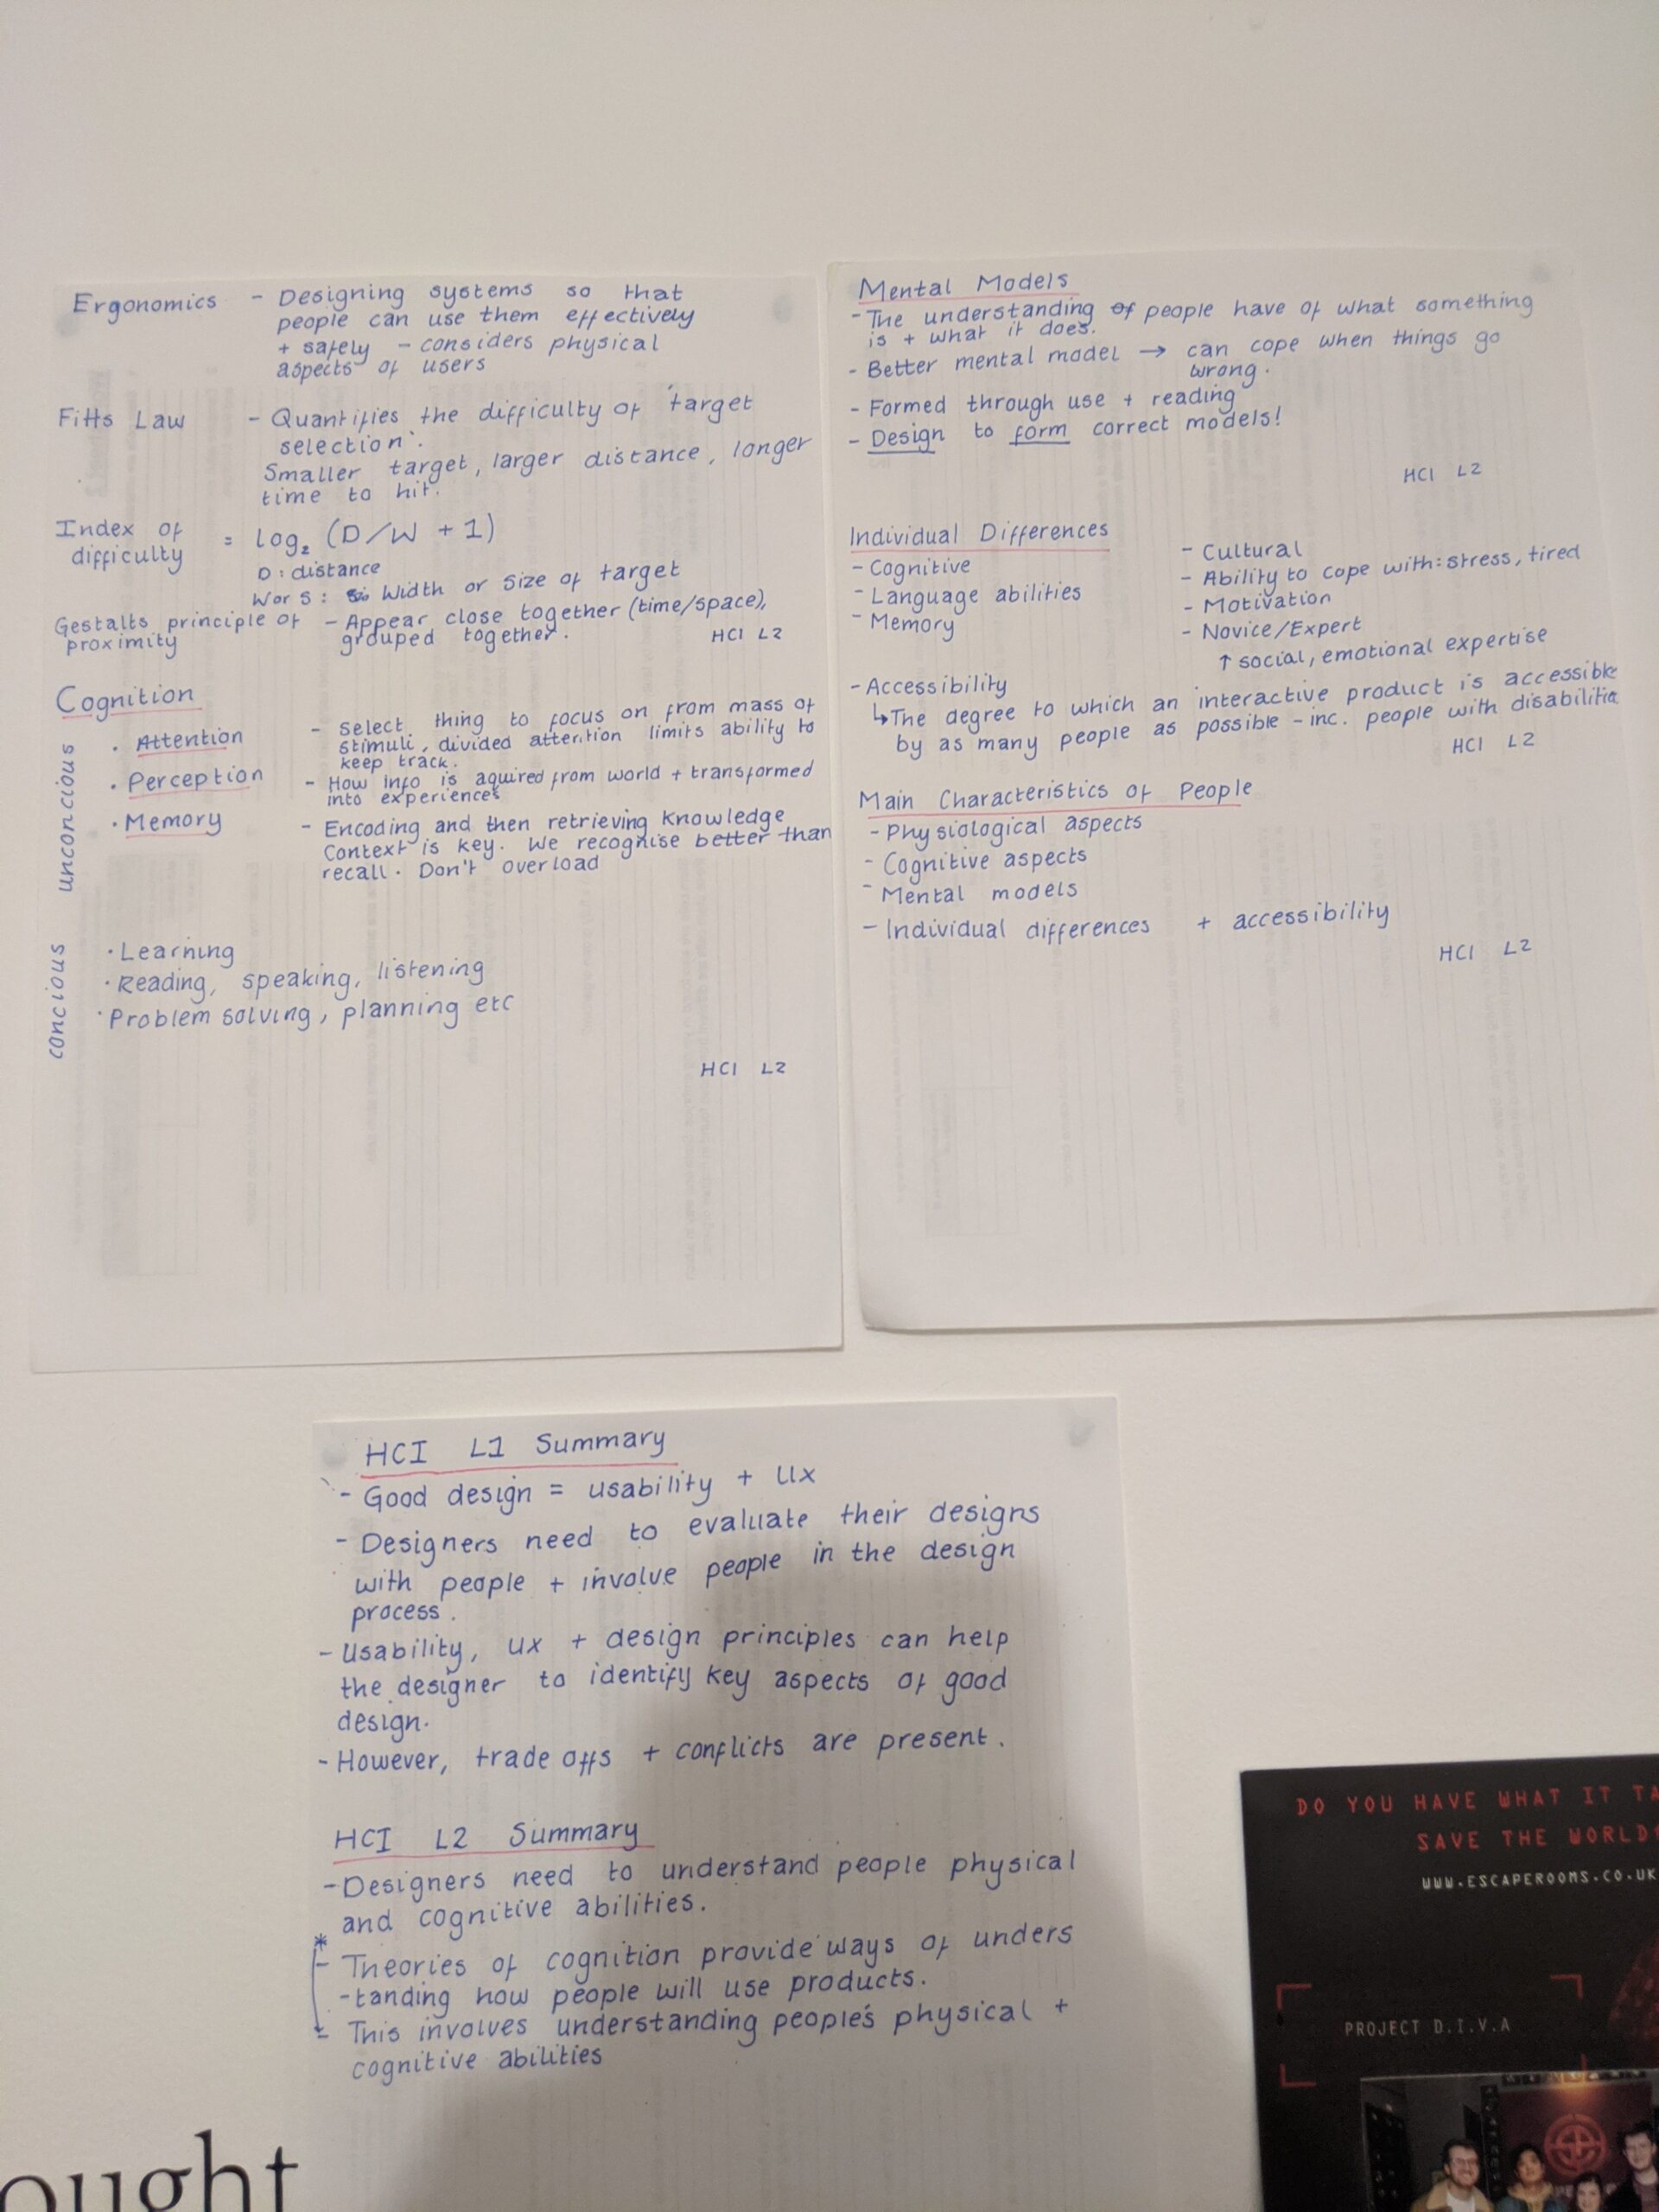 Ergonomics - Designing systems so that
people can use them effectively
+ safely - considers physical
aspects of users
Fitts Law - Quantifies the difficulty of target
selection.
Smaller target, larger distance, longer
time to hit.
Index of
difficulty = log₂ (D/W + 1)
D: distance
W or S: Width or Size of target
Gestalts principle of
proximity - Appear close together (time/space),
grouped together.
HCI L2
Cognition
unconcious
· Attention - Select thing to focus on from mass of
stimuli, divided attention limits ability to
keep track.
· Perception - How info is aquired from world + transformed
into experiences
· Memory - Encoding and then retrieving knowledge
Context is key. We recognise better than
recall. Don't overload
concious
· Learning
· Reading, speaking, listening
· Problem solving, planning etc
HCI L2
Mental Models
- The understanding of people have of what something
is + what it does.
- Better mental model → can cope when things go
wrong.
- Formed through use + reading
- Design to form correct models!
HCI L2
Individual Differences
- Cognitive
- Language abilities
- Memory
- Cultural
- Ability to cope with: stress, tired
- Motivation
- Novice/Expert
↑ social, emotional expertise
- Accessibility
↳ The degree to which an interactive product is accessible
by as many people as possible - inc. people with disabilitie
HCI L2
Main Characteristics of People
- Physiological aspects
- Cognitive aspects
- Mental models
- Individual differences + accessibility
HCI L2
HCI L1 Summary
- Good design = usability + Ux
- Designers need to evaluate their designs
with people + involve people in the design
process.
- Usability, ux + design principles can help
the designer to identify key aspects of good
design.
- However, trade offs + conflicts are present.
HCI L2 Summary
- Designers need to understand people physical
and cognitive abilities.
*
- Theories of cognition provide ways of unders
-tanding how people will use products.
- This involves understanding people's physical +
cognitive abilities
DO YOU HAVE WHAT IT TA
SAVE THE WORLD
WWW.ESCAPEROOMS.CO.UK
PROJECT D.I.V.A
ought